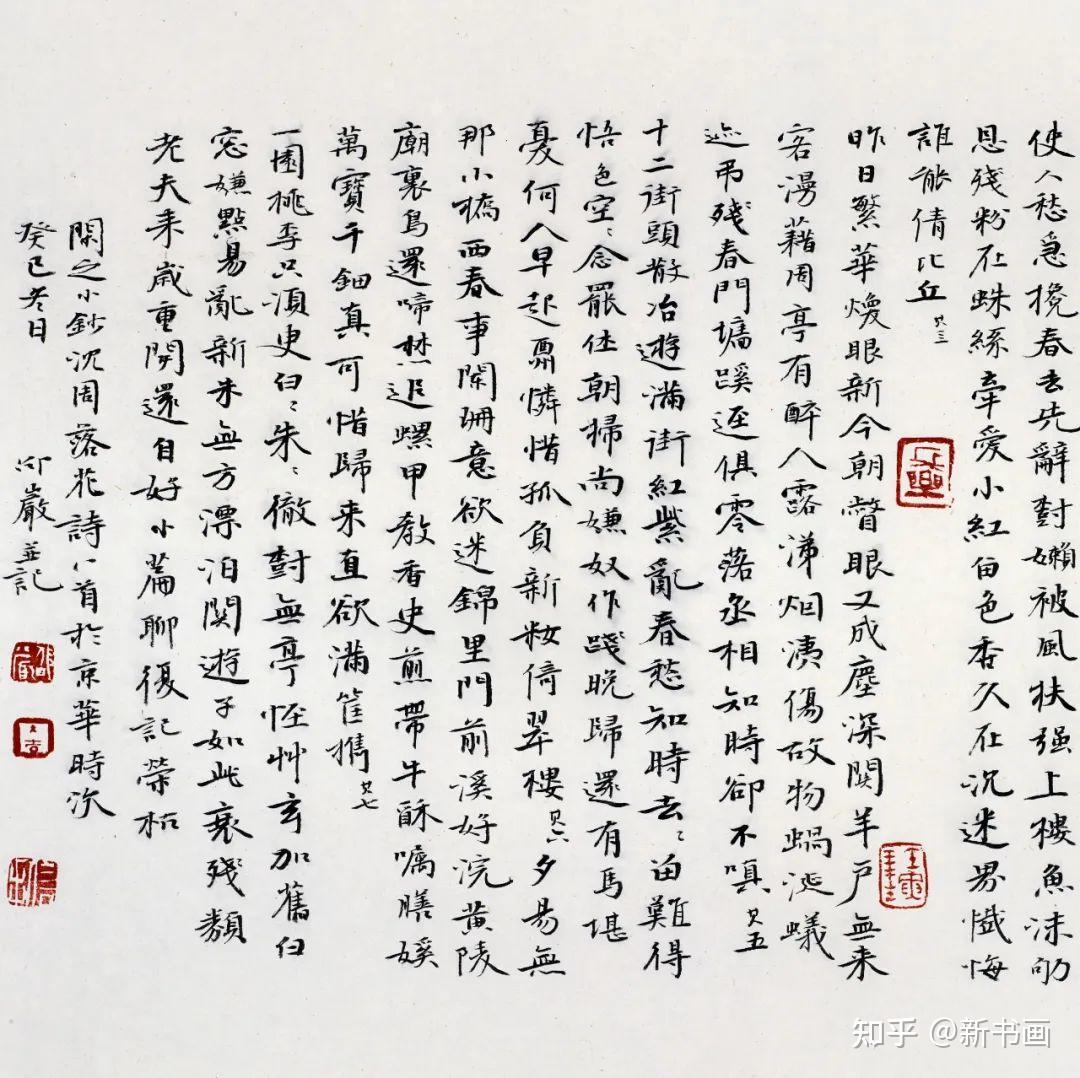 使人愁急攙春去先辭對嬾被風扶强上樓魚沫
恩殘粉在蛛絲牽愛小紅留色香久在沉迷界懺悔
誰能倩比丘 其三
昨日繁華煥眼新今朝瞥眼又成塵深關羊戶無来
客漫藉周亭有醉人露涕烟洟傷故物蝸涎蟻
迹弔殘春門墻蹊逕俱零落丞相知時卻不嗔 其五
十二街頭散冶遊滿街紅紫亂春愁知時去〻留難得
悟色空〻念罷休朝掃尚嫌奴作踐晚歸還有馬堪
憂何人早起酣憐惜孤負新妝倚翠樓 其六 夕昜無
那小橋西春事闌珊意欲迷錦里門前溪好浣黃陵
廟裏鳥還啼焚追螺甲教香史煎帶牛酥囑膳㜎
萬寶千鈿真可惜歸来直欲滿筐攜 其七
一園桃李只須臾白〻朱〻徹對無亭怪艸玄加舊白
窓嫌點易亂新朱無方漂泊關遊子如此衰殘類
老夫来歲重開還自好小篇聊復記榮枯
閑之小鈔沈周落花詩八首於京華時次
癸巳冬日 嚴並記
知乎 @新书画